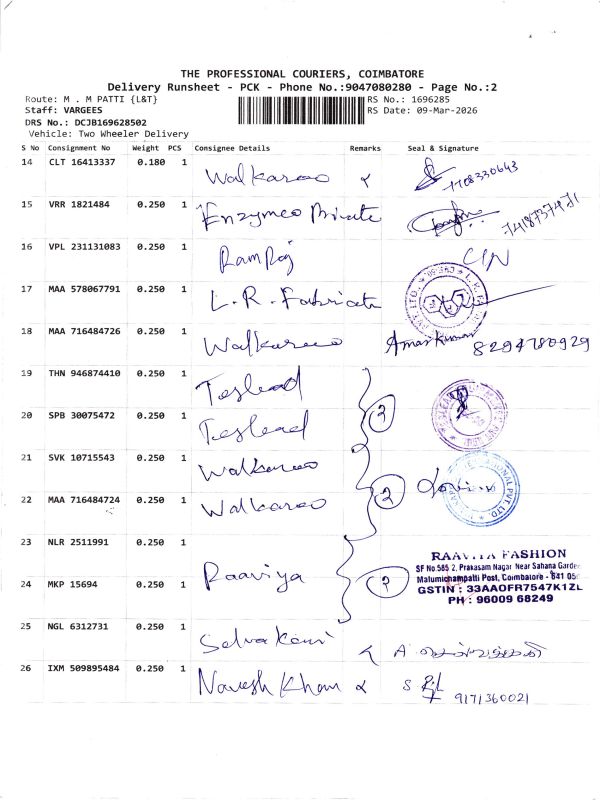 THE PROFESSIONAL COURIERS, COIMBATORE
Delivery Runsheet - PCK - Phone No.:9047080280 - Page No.:2
Route: M . M PATTI {L&T}
RS No.: 1696285
Staff: VARGEES
RS Date: 09-Mar-2026
DRS No.: DCJB169628502
Vehicle: Two Wheeler Delivery
S No Consignment No Weight PCS Consignee Details Remarks Seal & Signature
14 CLT 16413337 0.180 1 Walkaroo
15 VRR 1821484 0.250 1 Enzymeo Private 7418737471
16 VPL 231131083 0.250 1 Ramraj
17 MAA 578067791 0.250 1 L.R. Fabricate
18 MAA 716484726 0.250 1 Walkaroo Amar Kumar 8294780929
19 THN 946874410 0.250 1 Teslead
20 SPB 30075472 0.250 1 Teslead
21 SVK 10715543 0.250 1 Walkaroo
22 MAA 716484724 0.250 1 Walkaroo 2
23 NLR 2511991 0.250 1
RAAVIYA FASHION
SF No.585 2, Prakasam Nagar Near Sahana Garden
Malumichampatti Post, Coimbatore - 641 05
GSTIN : 33AAOFR7547K1ZL
PH : 96009 68249
24 MKP 15694 0.250 1 Raaviya
25 NGL 6312731 0.250 1 Selvakani
26 IXM 509895484 0.250 1 Navesh Khan 9171360021